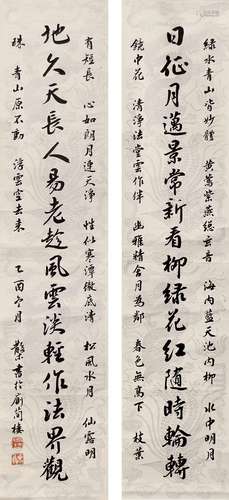 綠水青山皆妙體 黃鶯紫燕總玄音 海內藍天池內柳 水中明月
日征月邁景常新看柳綠花紅隨時輪轉
鏡中花 清淨法堂雲作伴 幽雅精舍月為鄰 春色無高下 枝葉
有短長 心如朗月連天淨 性似寒潭徹底清 松風水月 仙露明
地久天長人易老趁風雲淡輕作法界觀
珠 青山原不動 浮雲空去來 乙酉冬月 書於